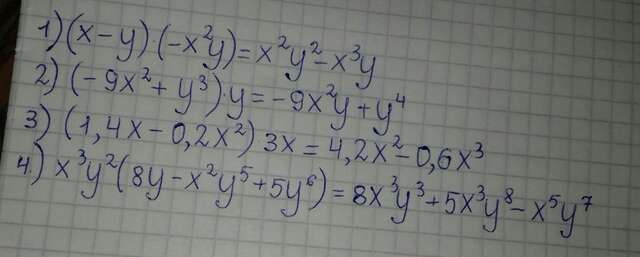 1) (x-y) (-x²y) = x²y² - x³y
2) (-9x² + y³) · y = -9x²y + y⁴
3) (1,4x - 0,2x²) 3x = 4,2x² - 0,6x³
4.) x³y² (8y - x²y⁵ + 5y⁶) = 8x³y³ + 5x³y⁸ - x⁵y⁷